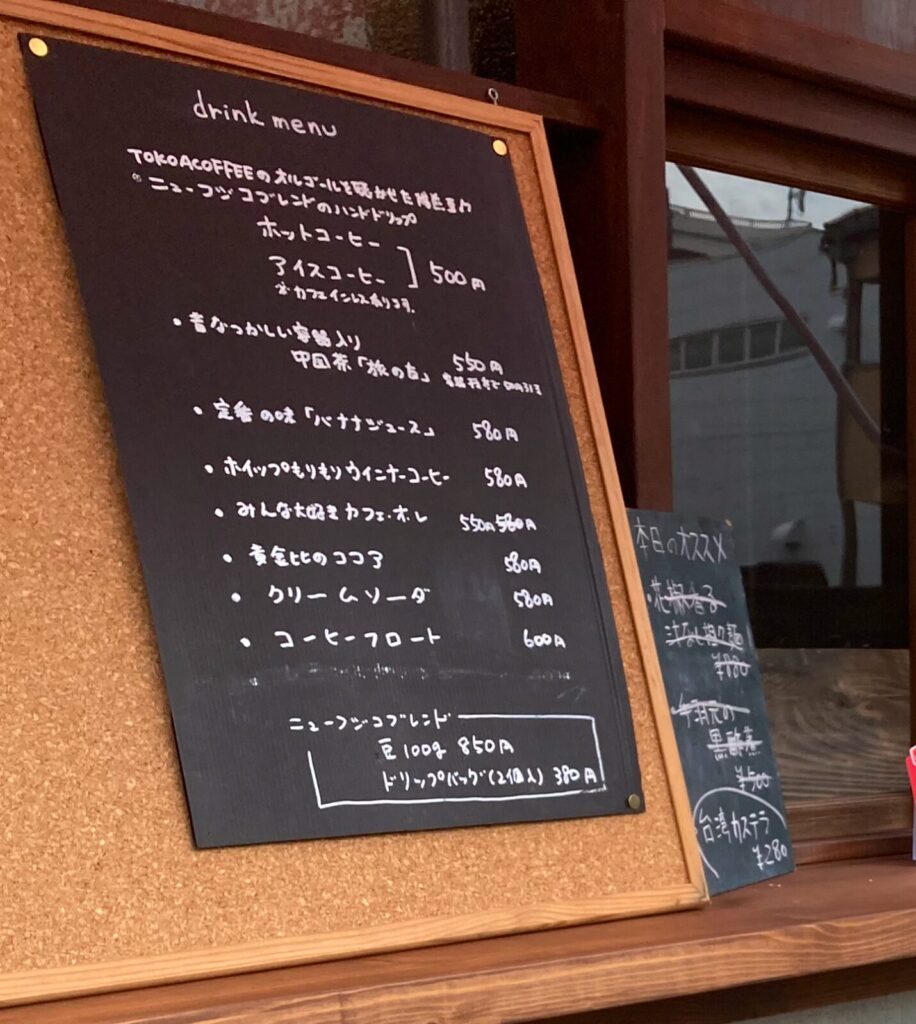 drink menu
TOKOACOFFEEのオルゴールを聴かせた
・ニューフジコブレンドのハンドドリップ
ホットコーヒー
アイスコーヒー ] 500円
※カフェインレスあります。
・昔なつかしい容器入り
中国茶「旅の友」 550円
・定番の味「バナナジュース」 580円
・ホイップもりもりウインナーコーヒー 580円
・みんな大好きカフェ・オ・レ 550円 580円
・黄金比のココア 580円
・クリームソーダ 580円
・コーヒーフロート 600円
ニューフジコブレンド
豆100g 850円
ドリップバッグ(2個入) 380円
本日のオススメ
汁なし担々麺
¥880
黒酢煮
¥500
・台湾カステラ
¥280